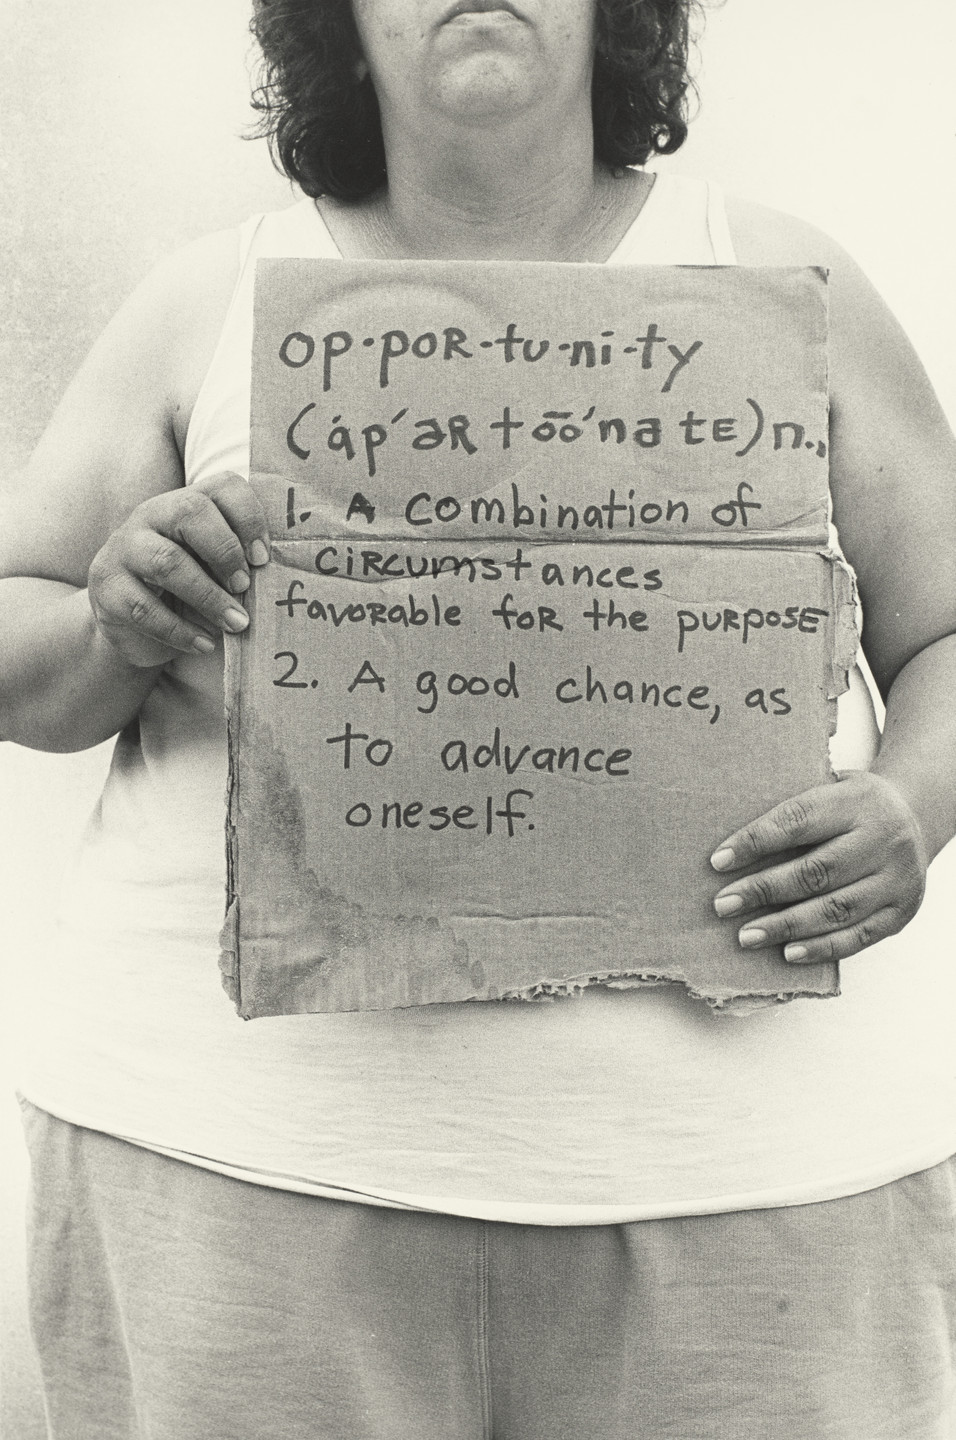 op·poR·tu·ni·ty
(áp′əR tōō′nə tE) n.,
1. A combination of
ciRcumstances
favoRable foR the puRposE
2. A good chance, as
to advance
oneself.